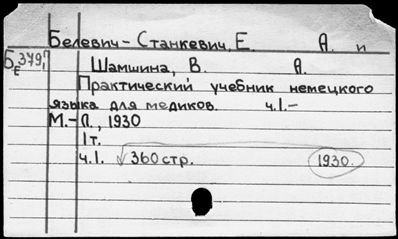 Белевич-Станкевич, Е. А. и
Бе 379,
Шамшина, В. А.
Практический учебник немецкого
языка для медиков. ч.I.-
М.-Л., 1930
1т.
ч.I. 360 стр. 1930.